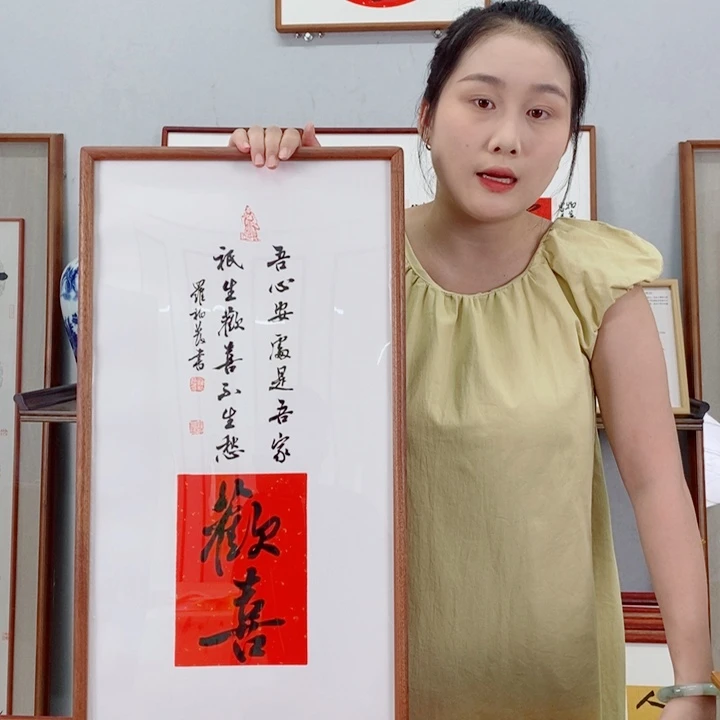 吾心安處是吾家
祇生歡善不生愁
羅柏茂書
歡
喜
人